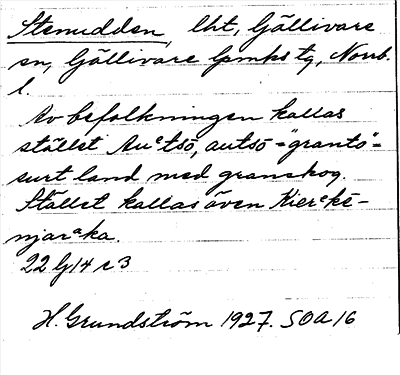 Stenudden, lht, Gällivare
sn, Gällivare lpmks tg, Norrb.
l.
Av befolkningen kallas
stället Auᵉtsō, autsō = "granto" =
surt land med granskog.
Stället kallas även Kierᵉkē-
njarᵃka.
22 G14 r 3
H. Grundström 1927. SOA 16